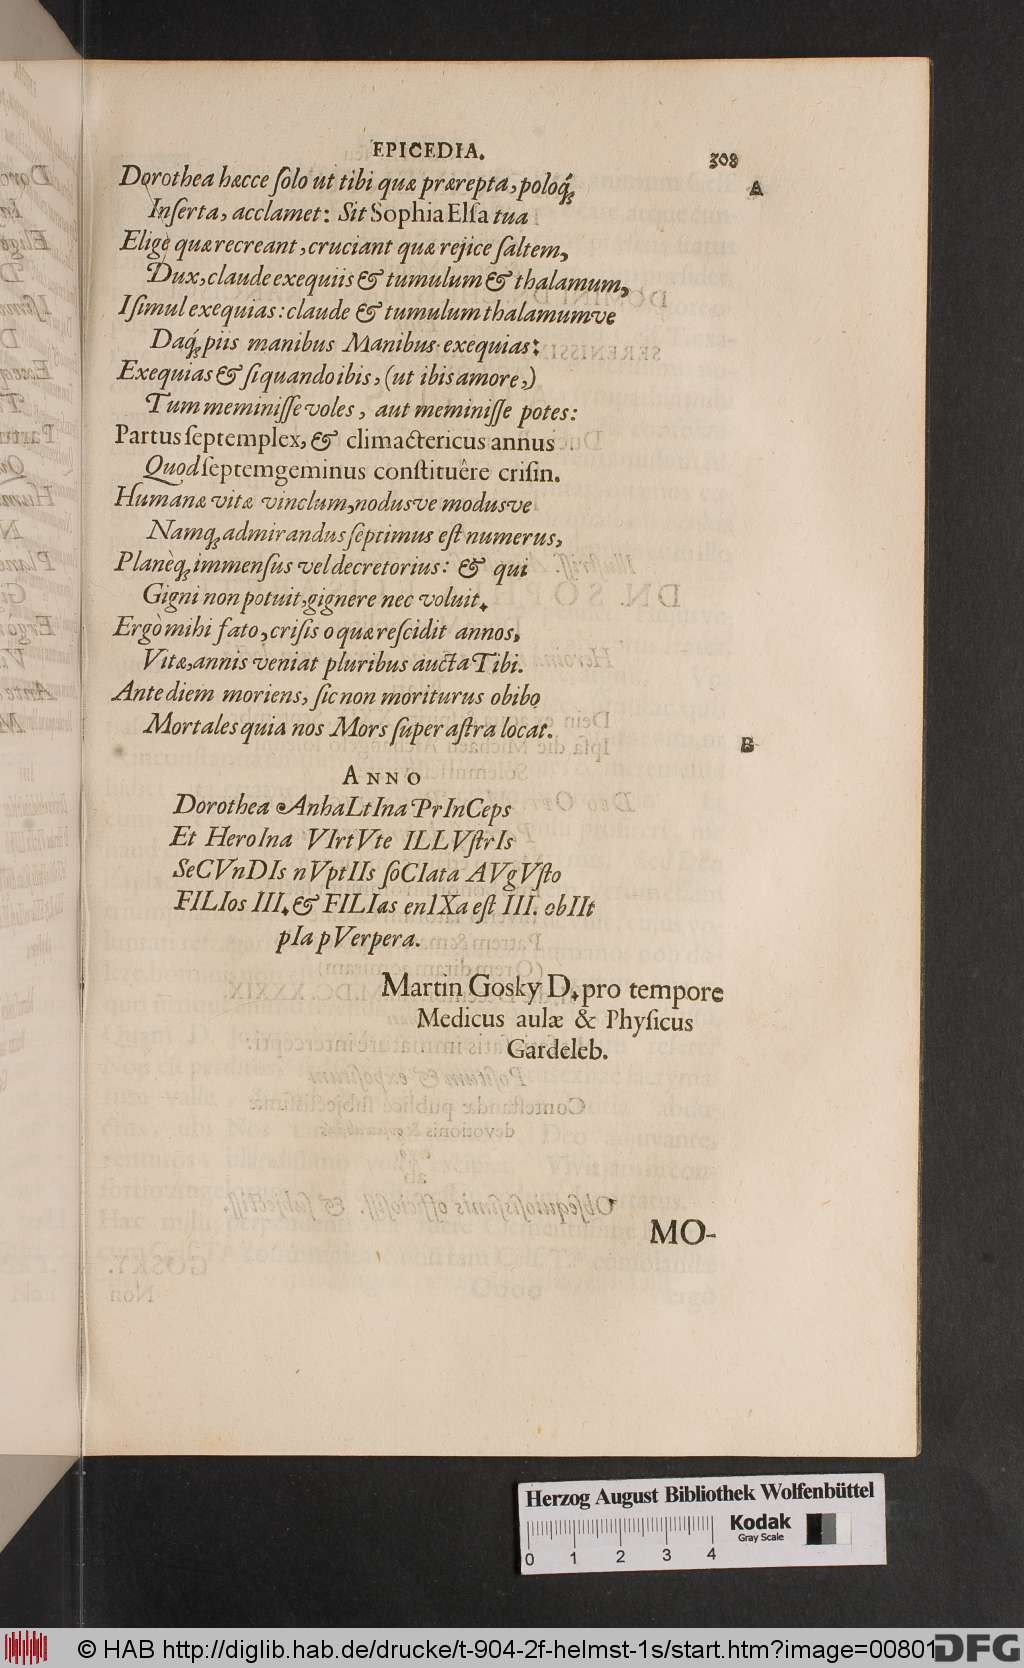 EPICEDIA. 308
Dorothea hæcce ſolo ut tibi quæ prærepta, poloq́;
A
Inſerta, acclamet: Sit Sophia Elſa tua
Elige quæ recreant, cruciant quæ rejice ſaltem,
Dux, claude exequiis & tumulum & thalamum,
I ſimul exequias: claude & tumulum thalamumve
Daq́; piis manibus Manibus exequias:
Exequias & ſi quando ibis, (ut ibis amore,)
Tum meminiſſe voles, aut meminiſſe potes:
Partus ſeptemplex, & climactericus annus
Quod ſeptemgeminus conſtituêre criſin.
Humanæ vitæ vinclum, nodusve modusve
Namq; admirandus ſeptimus eſt numerus,
Planèq; immenſus vel decretorius: & qui
Gigni non potuit, gignere nec voluit.
Ergò mihi fato, criſis o quæ reſcidit annos,
Vitæ, annis veniat pluribus aucta Tibi.
Ante diem moriens, ſic non moriturus obibo
Mortales quia nos Mors ſuper aſtra locat.
B
ANNO
Dorothea AnhaLtIna PrInCeps
Et HeroIna VIrtVte ILLVſtrIs
SeCVnDIs nVptIIs ſoCIata AVgVſto
FILIos III. & FILIas enIXa eſt III. obIIt
pIa pVerpera.
Martin Gosky D. pro tempore
Medicus aulæ & Phyſicus
Gardeleb.
MO-
Herzog August Bibliothek Wolfenbüttel
Kodak
Gray Scale
0 1 2 3 4
© HAB http://diglib.hab.de/drucke/t-904-2f-helmst-1s/start.htm?image=00801
DFG